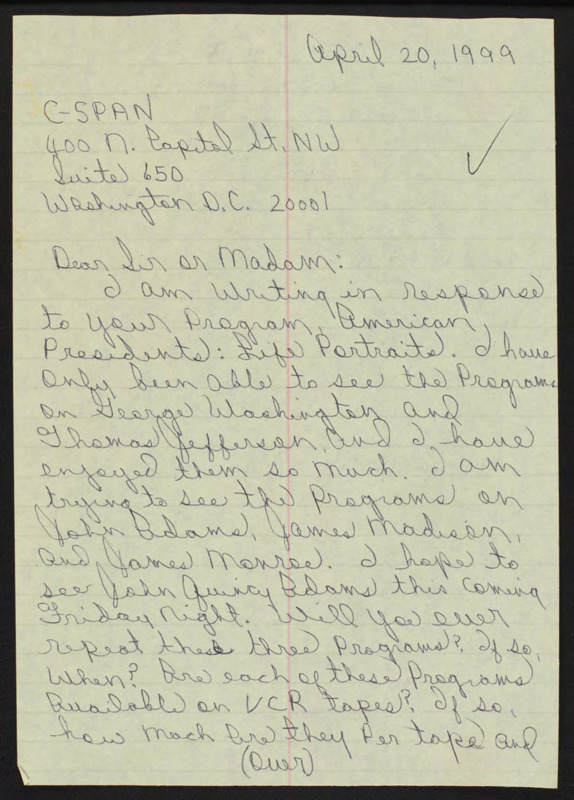 April 20, 1999
C-SPAN
400 N. Capital St. NW
Suite 650
Washington D.C. 20001
Dear Sir or Madam:
I am writing in response
to your Program, American
Presidents: Life Portraits. I have
only been able to see the Programs
on George Washington and
Thomas Jefferson, and I have
enjoyed them so much. I am
trying to see the Programs on
John Adams, James Madison,
and James Monroe. I hope to
see John Quincy Adams this coming
Friday night. Will you ever
repeat these three Programs? If so,
when? Are each of these Programs
Available on VCR tapes? If so,
how much are they Per tape and
(over)